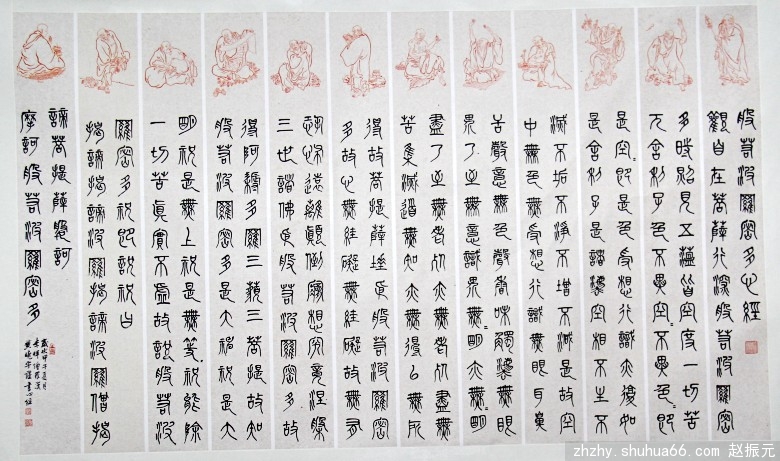 般若波羅密多心經
觀自在菩薩行深般若波羅密
多時照見五蘊皆空度一切苦
厄舍利子色不異空=不異色=即
是空=即是色受想行識亦復如
是舍利子是諸法空相不生不
滅不垢不淨不增不減是故空
中無色無受想行識無眼耳鼻
舌聲意無色聲香味觸法無眼
界乃至無意識界無=明亦無=明
盡乃至無老死亦無老死盡無
苦集滅道無知亦無得以無所
得故菩提薩埵依般若波羅密
多故心無罣礙無罣礙故無有
恐怖遠離顛倒夢想究竟涅槃
三世諸佛依般若波羅密多故
得阿耨多羅三藐三菩提故知
般若波羅密多是大神咒是大
明咒是無上咒是無等=咒能除
一切苦真實不虛故說般若波
羅密多咒即說咒曰
揭諦揭諦波羅揭諦波羅僧揭
諦菩提薩婆訶
摩訶般若波羅密多
zhzhy.shuhua66.com 赵振元